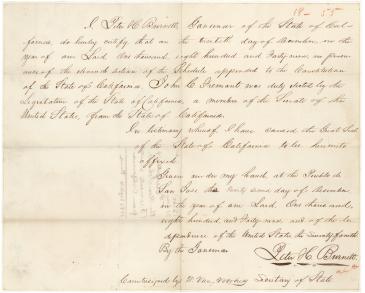 18-55
I Peter H. Burnett, Governor of the State of Cal-
ifornia, do hereby certify that on the twentieth day of December in the
year of our Lord One thousand, eight hundred and Forty nine, in pursu-
ance of the eleventh section of the Schedule appended to the Constitution
of the State of California, John C. Fremont was duly elected by the
Legislature of the State of California, a member of the Senate of the
United States, from the State of California.
In testimony whereof I have caused the Great Seal
of the State of California to be hereunto
affixed.
Given under my hand at the Pueblo de
San Jose this twenty second day of December
in the year of our Lord, One thousand,
eighty hundred and Forty nine, and of the In-
dependence of the United States the Seventy fourth
By the Governor
Peter H. Burnett
Countersigned by Wm Van Voorhies Secretary of State